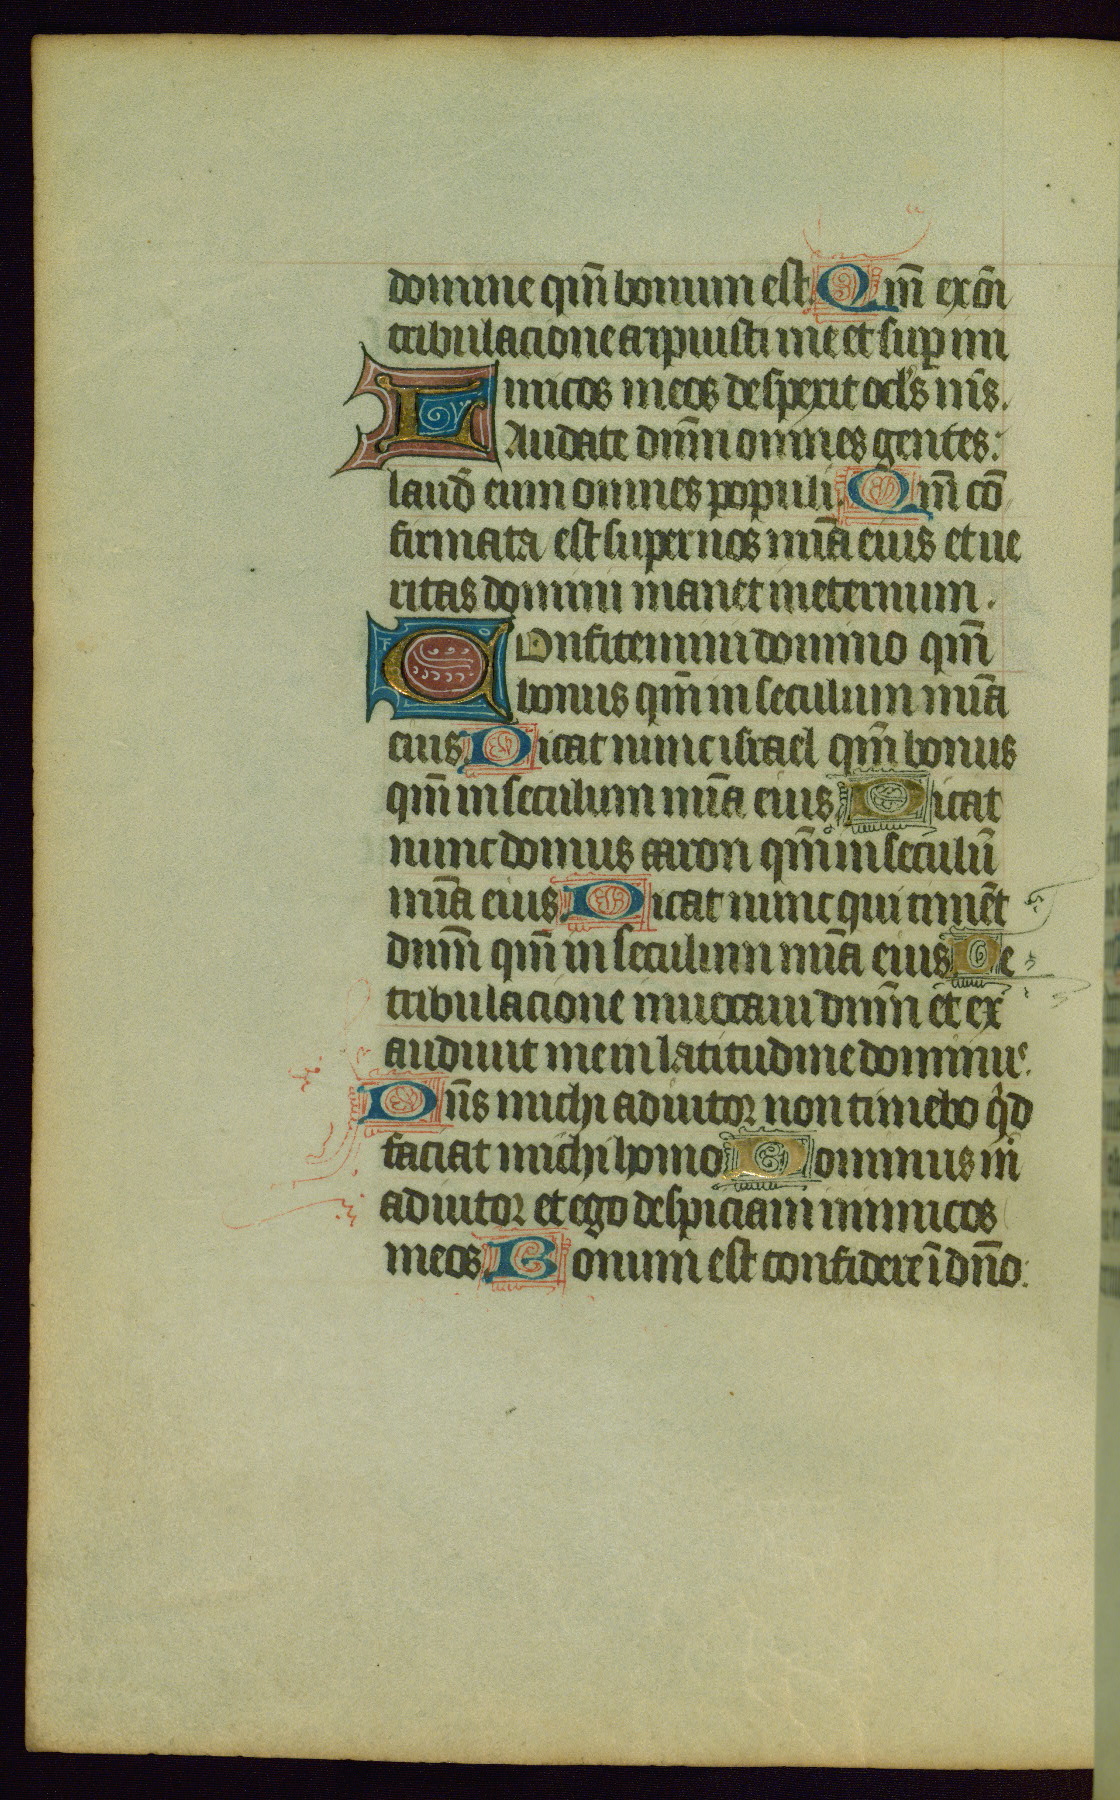 domine qm̄ bonum est. Qm̄ ex om̄i
tribulacione arpiuisti me et sup̲ ini
micos meos despexit ocl̄s m̄s.
LAudate dn̄m omnes gentes:
laud̄ eum omnes populi. Qm̄ cō
firmata est super nos mīa eius et ue
ritas domini manet ineternum.
COnfitemini domino qm̄
bonus qm̄ in seculum mīa
eius. Dicat nunc israel qm̄ bonus
qm̄ in seculum mīa eius. Dicat
nunc domus aaron qm̄ in seculū
mīa eius. Dicat nunc qui timēt
dnm̄ qm̄ in seculum mīa eius. De
tribulacione inuocaui dnm̄ et ex
audiuit me in latitudine dominus.
Dn̄s michi adiutor non timebo qd̄
faciat michi homo. Dominus m̄
adiutor et ego despiciam inimicos
meos. Bonum est confidere ī dn̄o: